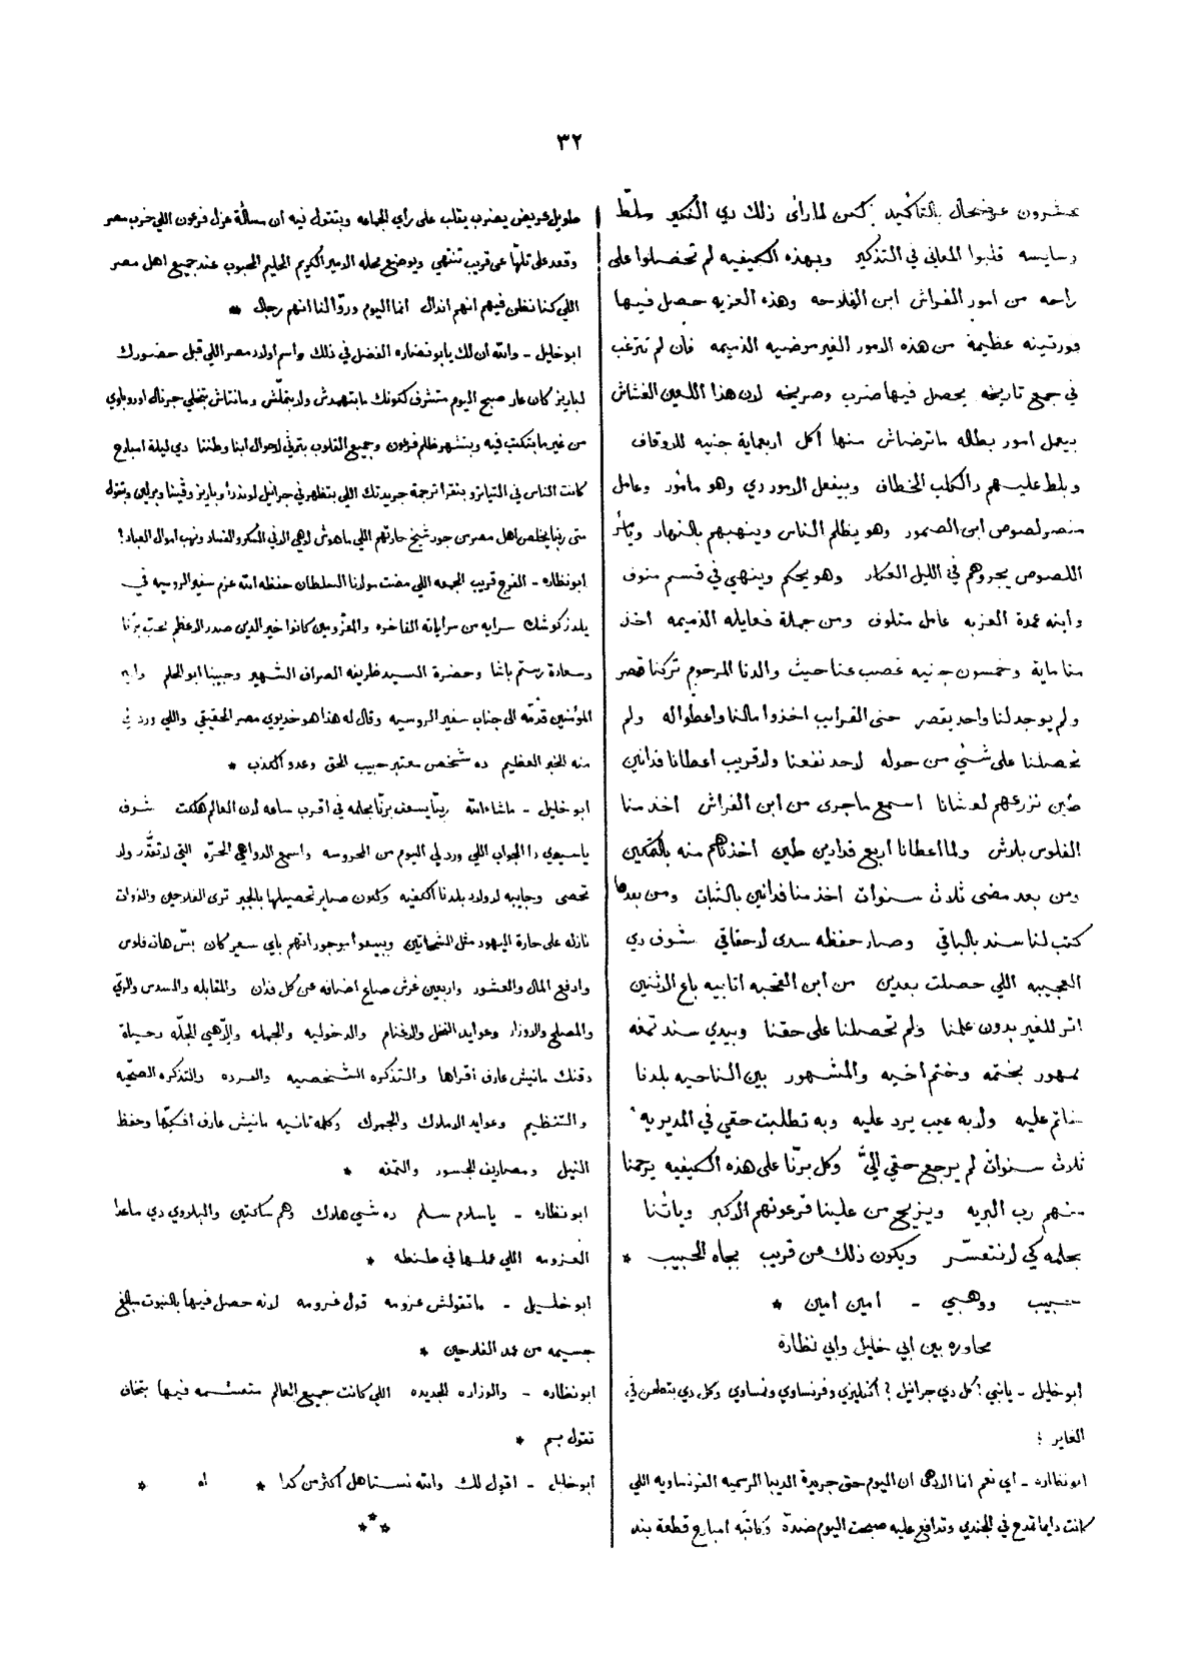 ٣٢
عشرون عرضحال بالتأكيد لكن لما رأى ذلك دي النكو سلّط
رسايسه قلبوا المعاني في التذكير وبهذه الكيفيه لم تحصلوا على
راحه من امور الفراش ابن الفلاحه وهذه العزبه حصل فيها
عظيمة من هذه الامور الغير مرضيه الذميمه فان لم ترغب
في جمع تاريخه يحصل فيها ضرب وصريخه لان هذا اللعين الغشاش
بيعمل امور بطاله ماترضاش منها أكل اربعماية جنيه للاوقاف
وبلط عليهم دالكلب الخطاف وبيفعل الامور دي وهو مأمور وعامل
منصر لصوص ابن الصمور وهو يظلم الناس وينهبهم بالنهار
اللصوص يجروهم في الليل العكار وهو يحكم وينهي في قسم منوف
وابنه عمدة العزبه عامل متلوف ومن جملة فعايله الذميمه اخذ
منا ماية وخمسون جنيه غصب عنا حيث والدنا المرحوم تركنا قصر
ولم يوجد لنا واحد يقصر حتى القرايب اخذوا مالنا واعطوا له ولم
تحصلنا على شئي من حوله لاحد نفعنا ولا قريب أعطانا فدانين
طين نزرعهم لعشانا اسمع ماجرى من ابن الفراش اخذ منا
الفلوس بلاش ولما اعطانا اربع فدادين طين أخذناهم منه بالتمكين
ومن بعد مضى ثلاث سنوات اخذ منا فدانين بالثبات ومن بعدها
كتب لنا سند بالباقي وصار حفظه سدى لاحقاقي شوف دي
العجيبه اللي حصلت بعدين من ابن القحبه انا بيه باع الاثنين
اتر للغير بدون علمنا ولم تحصلنا على حقنا وبيدي سند تمغه
ممهور بختمه وختم اخيه والمشهور بين الناحيه بلدنا
خاتم عليه ولا به عيب يرد عليه وبه تطلبت حقي في المديريه
ثلاث سنوات لم يرجع حقي اليّ وكل برّنا على هذه الكيفيه يرحمنا
منهم رب البريه ويزيح من علينا فرعونهم الأكبر ويأتنا
بحلمه كي لا نتعسّر ويكون ذلك عن قريب بجاه الحبيب *
حبيب ووهبي - امين امين *
محاوره بين ابي خليل وابي نظارة
أبو خليل - يا نبي! كل دي جرانيل؟ أنكليزي وفرنساوي ونمساوي وكل دي بتطعن في
الغاير؟
ابو نظاره - أي نعم انما الادهى ان اليوم حق جريدة الديبا الرسميه الفرنساويه اللي
كانت دايما تمدح في الجندي وتدافع عليه صبحت اليوم ضدّه وكاتبه امبارح قطعة بند
طويل عريض يضرب يقلب على رأي الجماعه وبتقول فيه ان مسألة عزل فرعون اللي خرب مصر
وقعد على تلها عن قريب تنتهي ويوضع محله الامير الكريم الحليم المحبوب عند جميع اهل مصر
اللي كنا نظن فيهم انهم اندال انما اليوم وروّا لنا انهم رجال *
ابو خليل - والله أن لك يا بو نضاره الفضل في ذلك واسم أولاد مصر اللي قبل حضورك
لباريز كان عار صبح اليوم متشرف لكونك ما بتهمدش ولا بتملّش ومانتاش بتخلي جرنال اوروباوي
من غير ما بتكتب فيه وبتشهر ظلم فرعون وجميع القلوب بترثي لاحوال ابنا وطننا دي ليلة امبارح
كانت الناس في التياترو بتقرا ترجمة جريدتك اللي بتظهر في جرانيل لوندرا وباريز وفينا وبرلين وبتقول
متى ربنا يخلص اهل مصر من جور شيخ حارتهم اللي ماهوش لاهي الا في السكر والفساد ونهب أموال العباد؟
ابو نظاره - الفرج قريب الجمعه اللي مضت مولانا السلطان حفظه الله عزم سفير الروسيه في
يلدز كوشك سرايه من سراياته الفاخره والمعزومين كانوا خير الدين صدر الاعظم محب برّنا
وسعادة رستم باشا وحضرة السيد ظريفه الصراف الشهير وحبيبنا ابو الحلم
المؤمنين قدّمه الى جناب سفير الروسيه وقال له هذا هو خديوي مصر الحقيقي واللي ورد لي
منه الخبر العظيم ده شخص معتبر حبيب الحق وعدو الكذب *
ابو خليل - ماشاء الله ربنا يسعف برّنا بحلمه في اقرب ساعه لان العالم هلكت شوف
يا سيدي دا الجواب اللي ورد لي اليوم من المحروسه واسمع الدواهي الحرّه التي لا تعدّ ولا
تحصى وجايبه لاولاد بلدنا الكفيه وكون صاير تحصيلها بالجبر ترى الفلاحين والذوات
نازله على حارة اليهود مثل الشحاتين وبيبيعوا موجوداتهم باي سعر كان بسّ هات فلوس
وادفع المال والعشور واربعين غرش صاغ اضافه عن كل فدان والمقابله والسدس والريّ
والمصلح والاوزار وعوايد النخل والاغنام والدخوليه والجمله والاّهي المجلّه وحياة
دقنك مانيش عارف أقراها والتذكره الشخصيه والفرده والتذكره الصحّيه
والتنظيم وعوايد الاملاك والجمرك وكلمه تانيه مانيش عارف أفكّها وحفظ
النيل ومصاريف الجسور والتمغه *
ابو نظاره - يا سلام سلم ده شي هلاك وهم ساكتين والبلاوي دي ماعدا
العزومه اللي عملها في طنطه *
ابو خليل - ماتقولش عزومه قول غرومه لانه حصل فيها بالنبوت مبالغ
جسيمه من عمد الفلاحين *
ابو نظاره - والوزاره الجديده اللي كانت جميع العالم متعشمه فيها بتخاف
تقول بم *
أبو خليل - اقول لك والله نستاهل أكثر من كدا * اه *
***